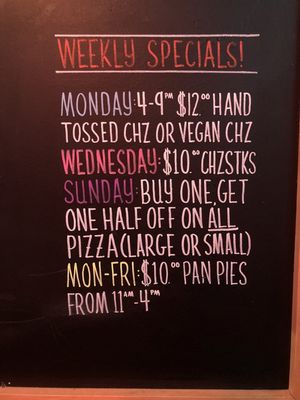 WEEKLY SPECIALS!
MONDAY: 4-9PM $12.00 HAND
TOSSED CHZ OR VEGAN CHZ
WEDNESDAY: $10.00 CHZSTKS
SUNDAY: BUY ONE, GET
ONE HALF OFF ON ALL
PIZZA (LARGE OR SMALL)
MON-FRI: $10.00 PAN PIES
FROM 11AM-4PM